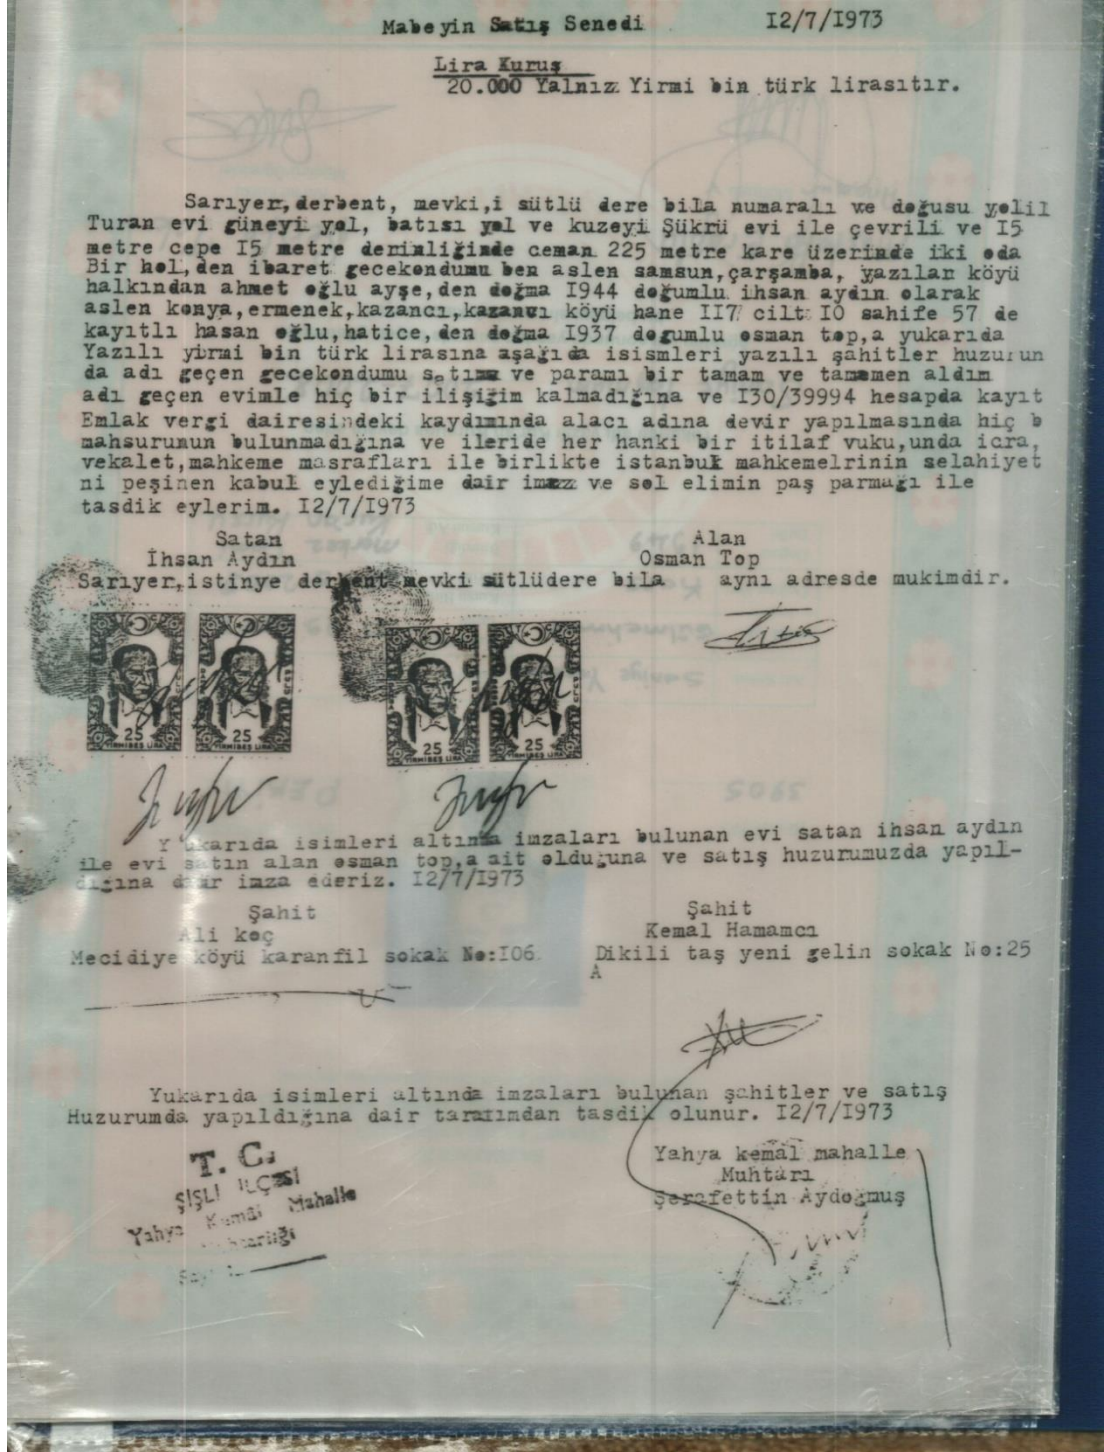 Mabeyin Satış Senedi I2/7/I973
Lira Kuruş
20.000 Yalnız Yirmi bin türk lirasıtır.
Sarıyer,derbent, mevki,i sütlü dere bila numaralı ve doğusu yolil
Turan evi güneyi yol, batısı yol ve kuzeyi Şükrü evi ile çevrili ve I5
metre cepe I5 metre derinliğinde ceman 225 metre kare üzerinde iki oda
Bir hol,den ibaret gecekondumu ben aslen samsun,çarşamba, yazılar köyü
halkından ahmet oğlu ayşe,den doğma I944 doğumlu ihsan aydın olarak
aslen konya,ermenek,kazancı,kazancı köyü hane II7 cilt IO sahife 57 de
kayıtlı hasan oğlu,hatice,den doğma I937 dogumlu osman top,a yukarıda
Yazılı yirmi bin türk lirasına aşağıda isismleri yazılı şahitler huzurun
da adı geçen gecekondumu ve paramı bir tamam ve tamemen aldım
adı geçen evimle hiç bir ilişiğim kalmadığına ve I30/39994 hesapda kayıt
Emlak vergi dairesindeki kaydımında alacı adına devir yapılmasında hiç b
mahsurunun bulunmadığına ve ileride her hanki bir itilaf vuku,unda icra,
vekalet,mahkeme masrafları ile birlikte istanbul mahkemelrinin selahiyet
ni peşinen kabul eylediğime dair ve sol elimin paş parmağı ile
tasdik eylerim. I2/7/I973
Satan Alan
İhsan Aydın Osman Top
Sarıyer,istinye derbent mevki sütlüdere bila aynı adresde mukimdir.
25 25 25 25
YİRMİBEŞ LİRA YİRMİBEŞ LİRA YİRMİBEŞ LİRA YİRMİBEŞ LİRA
Yukarıda isimleri altında imzaları bulunan evi satan ihsan aydın
ile evi satın alan osman top,a ait olduğuna ve satış huzurumuzda yapıl-
dığına dair imza ederiz. I2/7/I973
Şahit Şahit
Ali koç Kemal Hamamcı
Mecidiye köyü karanfil sokak No:IO6 Dikili taş yeni gelin sokak No:25
A
Yukarıda isimleri altında imzaları bulunan şahitler ve satış
Huzurumda yapıldığına dair tarafımdan tasdik olunur. I2/7/I973
T. C.
ŞİŞLİ İLÇESİ
Yahya Kemal Mahalle
Muhtarlığı
Yahya kemal mahalle
Muhtarı
Şerafettin Aydoğmuş